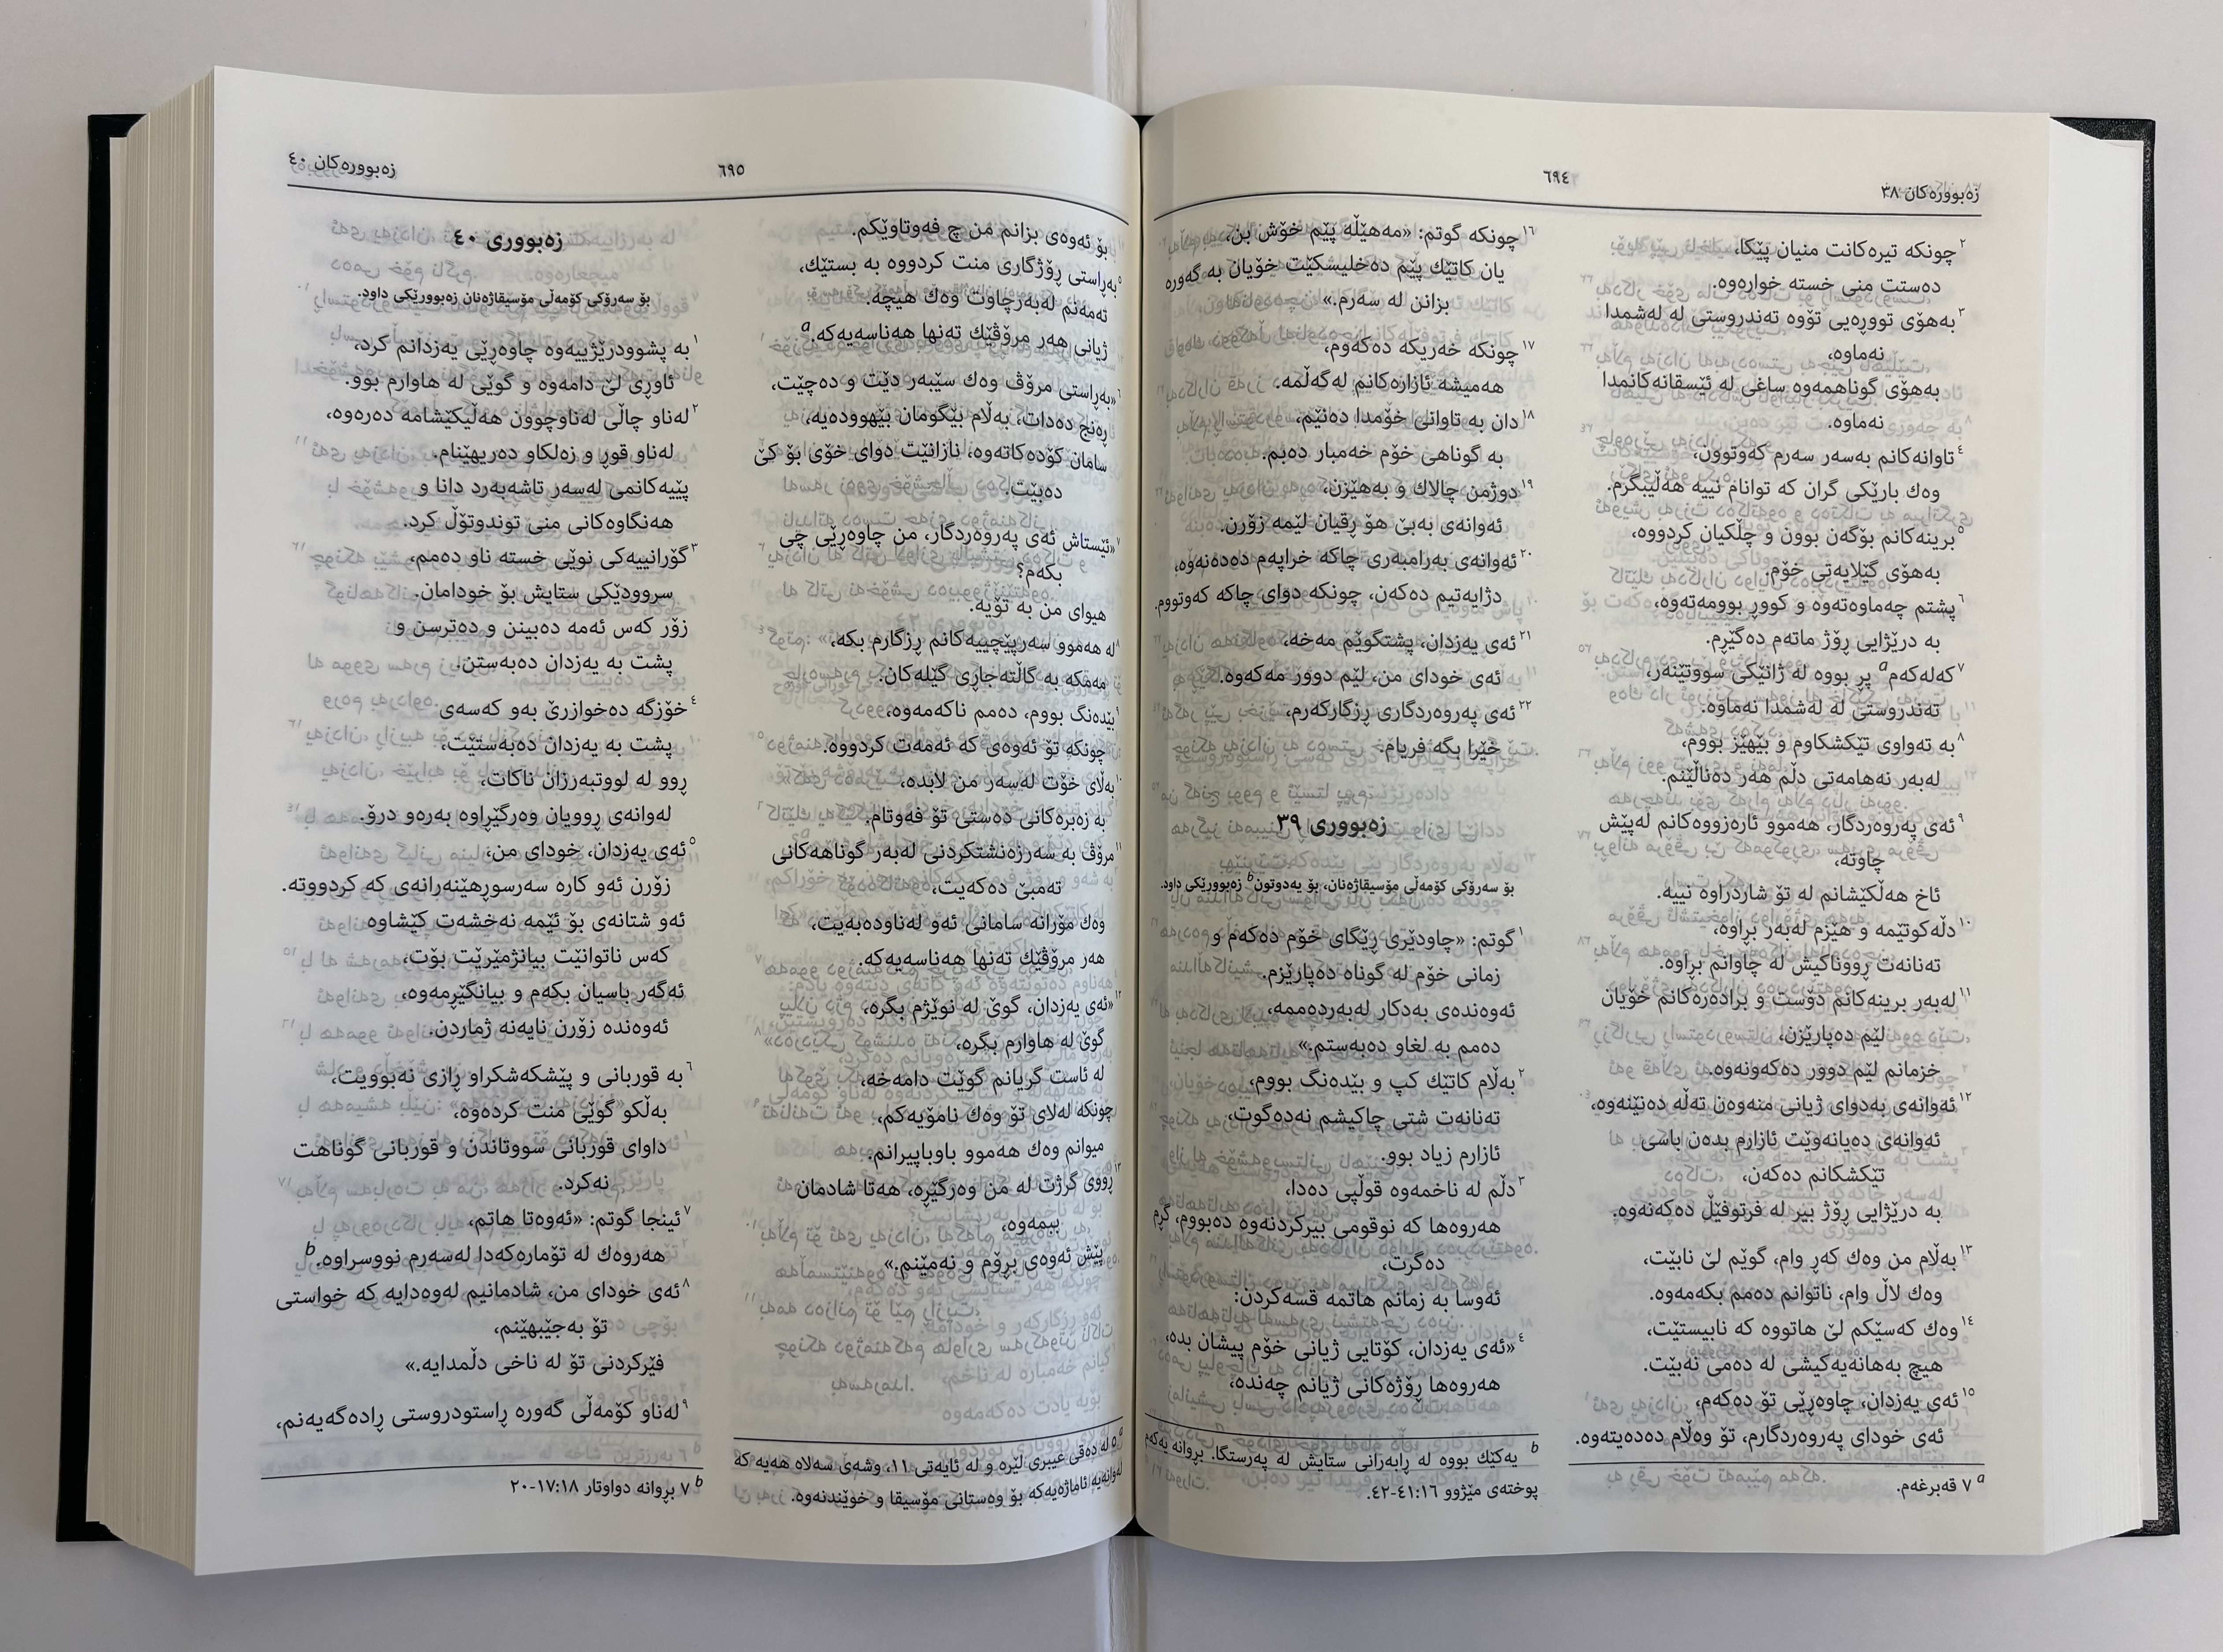 زەبوورەکان ٣٨
٦٩٤
٢ چونکە تیرەکانت منیان پێکا،
دەستت منی خستە خوارەوە.
٣ بەهۆی توورەیی تۆوە تەندروستی لە لەشمدا
نەماوە،
بەهۆی گوناهمەوە ساغی لە ئێسقانەکانمدا
نەماوە.
٤ تاوانەکانم بەسەر سەرم کەوتوون،
وەك بارێکی گران کە توانام نییە هەڵیبگرم.
٥ برینەکانم بۆگەن بوون و چڵکیان کردووە،
بەهۆی گێلایەتی خۆم.
٦ پشتم چەماوەتەوە و کووڕ بوومەتەوە،
بە درێژایی ڕۆژ ماتەم دەگێڕم.
٧ کەلەکەم a پڕ بووە لە ژانێکی سووتێنەر،
تەندروستی لە لەشمدا نەماوە.
٨ بە تەواوی تێکشکاوم و بێهێز بووم،
لەبەر نەهامەتی دڵم هەر دەناڵێنم.
٩ ئەی پەروەردگار، هەموو ئارەزووەکانم لەپێش
چاوتە،
ئاخ هەڵکێشانم لە تۆ شاردراوە نییە.
١٠ دڵەکوتێمە و هێزم لەبەر بڕاوە،
تەنانەت ڕووناکیش لە چاوانم بڕاوە.
١١ لەبەر برینەکانم دۆست و برادەرەکانم خۆیان
لێم دەپارێزن،
خزمانم لێم دوور دەکەونەوە.
١٢ ئەوانەی بەدوای ژیانی منەوەن تەڵە دەنێنەوە،
ئەوانەی دەیانەوێت ئازارم بدەن باسی
تێکشکانم دەکەن،
بە درێژایی ڕۆژ بیر لە فرتوفێڵ دەکەنەوە.
١٣ بەڵام من وەك کەڕ وام، گوێم لێ نابێت،
وەك لاڵ وام، ناتوانم دەمم بکەمەوە.
١٤ وەك کەسێکم لێ هاتووە کە نابیستێت،
هیچ بەهانەیەکیشی لە دەمی نەبێت.
١٥ ئەی یەزدان، چاوەڕێی تۆ دەکەم،
ئەی خودای پەروەردگارم، تۆ وەڵام دەدەیتەوە.
a ٧ قەبرغەم.
١٦ چونکە گوتم: «مەهێڵە پێم خۆش بن،
یان کاتێك پێم دەخلیسکێت خۆیان بە گەورە
بزانن لە سەرم.»
١٧ چونکە خەریکە دەکەوم،
هەمیشە ئازارەکانم لەگەڵمە.
١٨ دان بە تاوانی خۆمدا دەنێم،
بە گوناهی خۆم خەمبار دەبم.
١٩ دوژمن چالاك و بەهێزن،
ئەوانەی بەبێ هۆ ڕقیان لێمە زۆرن.
٢٠ ئەوانەی بەرامبەری چاکە خراپەم دەدەنەوە،
دژایەتیم دەکەن، چونکە دوای چاکە کەوتووم.
٢١ ئەی یەزدان، پشتگوێم مەخە،
ئەی خودای من، لێم دوور مەکەوە.
٢٢ ئەی پەروەردگاری ڕزگارکەرم،
خێرا بگە فریام.
زەبووری ٣٩
بۆ سەرۆکی کۆمەڵی مۆسیقاژەنان، بۆ یەدوتون b زەبوورێکی داود.
١ گوتم: «چاودێری ڕێگای خۆم دەکەم و
زمانی خۆم لە گوناه دەپارێزم.
ئەوەندەی بەدکار لەبەردەممە،
دەمم بە لغاو دەبەستم.»
٢ بەڵام کاتێك کپ و بێدەنگ بووم،
تەنانەت شتی چاکیشم نەدەگوت،
ئازارم زیاد بوو.
٣ دڵم لە ناخمەوە قوڵپی دەدا،
هەروەها کە نوقومی بیرکردنەوە دەبووم، گڕم
دەگرت،
ئەوسا بە زمانم هاتمە قسەکردن:
٤ «ئەی یەزدان، کۆتایی ژیانی خۆم پیشان بدە،
هەروەها ڕۆژەکانی ژیانم چەندە،
b یەکێك بووە لە ڕابەرانی ستایش لە پەرستگا. بڕوانە یەکەم
پوختەی مێژوو ١٦:٤١-٤٢.
٦٩٥
زەبوورەکان ٤٠
بۆ ئەوەی بزانم من چ فەوتاوێکم.
٥ بەڕاستی ڕۆژگاری منت کردووە بە بستێك،
تەمەنم لەبەرچاوت وەك هیچە.
ژیانی هەر مرۆڤێك تەنها هەناسەیەکە. a
٦ «بەڕاستی مرۆڤ وەك سێبەر دێت و دەچێت،
ڕەنج دەدات، بەڵام بێگومان بێهوودەیە،
سامان کۆدەکاتەوە، نازانێت دوای خۆی بۆ کێ
دەبێت.
٧ «ئێستاش ئەی پەروەردگار، من چاوەڕێی چی
بکەم؟
هیوای من بە تۆیە.
٨ لە هەموو سەرپێچییەکانم ڕزگارم بکە،
مەمکە بە گاڵتەجاڕی گێلەکان.
٩ بێدەنگ بووم، دەمم ناکەمەوە،
چونکە تۆ ئەوەی کە ئەمەت کردووە.
١٠ بەڵای خۆت لەسەر من لابدە،
بە زەبرەکانی دەستی تۆ فەوتام.
١١ مرۆڤ بە سەرزەنشتکردنی لەبەر گوناهەکانی
تەمبێ دەکەیت،
وەك مۆرانە سامانی ئەو لەناودەبەیت،
هەر مرۆڤێك تەنها هەناسەیەکە.
١٢ «ئەی یەزدان، گوێ لە نوێژم بگرە،
گوێ لە هاوارم بگرە،
لە ئاست گریانم گوێت دامەخە،
چونکە لەلای تۆ وەك نامۆیەکم،
میوانم وەك هەموو باوباپیرانم.
١٣ ڕووی گرژت لە من وەرگێڕە، هەتا شادمان
ببمەوە،
پێش ئەوەی بڕۆم و نەمێنم.»
a ٥ لە دەقی عیبری لێرە و لە ئایەتی ١١، وشەی سەلاه هەیە کە
لەوانەیە ئاماژەیەکە بۆ وەستانی مۆسیقا و خوێندنەوە.
زەبووری ٤٠
بۆ سەرۆکی کۆمەڵی مۆسیقاژەنان زەبوورێکی داود.
١ بە پشوودرێژییەوە چاوەڕێی یەزدانم کرد،
ئاوڕی لێ دامەوە و گوێی لە هاوارم بوو.
٢ لەناو چاڵی لەناوچوون هەڵیکێشامە دەرەوە،
لەناو قوڕ و زەلکاو دەریهێنام.
پێیەکانمی لەسەر تاشەبەرد دانا و
هەنگاوەکانی منی توندوتۆڵ کرد.
٣ گۆرانییەکی نوێی خستە ناو دەمم،
سروودێکی ستایش بۆ خودامان.
زۆر کەس ئەمە دەبینن و دەترسن و
پشت بە یەزدان دەبەستن.
٤ خۆزگە دەخوازرێ بەو کەسەی
پشت بە یەزدان دەبەستێت،
ڕوو لە لووتبەرزان ناکات،
لەوانەی ڕوویان وەرگێڕاوە بەرەو درۆ.
٥ ئەی یەزدان، خودای من،
زۆرن ئەو کارە سەرسوڕهێنەرانەی کە کردووتە.
ئەو شتانەی بۆ ئێمە نەخشەت کێشاوە
کەس ناتوانێت بیانژمێرێت بۆت،
ئەگەر باسیان بکەم و بیانگێڕمەوە،
ئەوەندە زۆرن نایەنە ژماردن.
٦ بە قوربانی و پێشکەشکراو ڕازی نەبوویت،
بەڵکو گوێی منت کردەوە،
داوای قوربانی سووتاندن و قوربانی گوناهت
نەکرد.
٧ ئینجا گوتم: «ئەوەتا هاتم،
هەروەك لە تۆمارەکەدا لەسەرم نووسراوە. b
٨ ئەی خودای من، شادمانیم لەوەدایە کە خواستی
تۆ بەجێبهێنم،
فێرکردنی تۆ لە ناخی دڵمدایە.»
٩ لەناو کۆمەڵی گەورە ڕاستودروستی ڕادەگەیەنم،
b ٧ بڕوانە دواوتار ١٧:١٨-٢٠